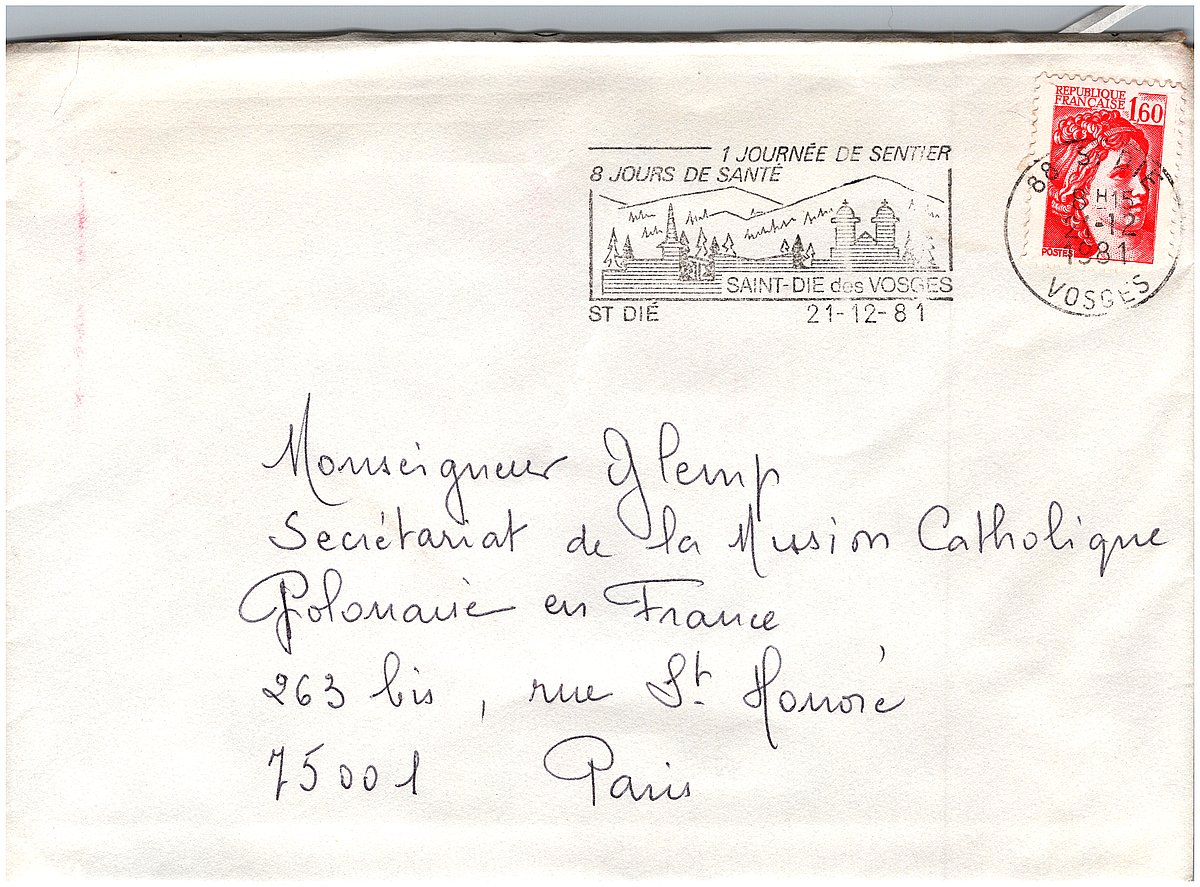 REPUBLIQUE
FRANÇAISE 1,60
POSTES
1 JOURNÉE DE SENTIER
8 JOURS DE SANTÉ
SAINT-DIE des VOSGES
ST DIÉ 21-12-81
88 ST DIE
8H15
21-12
1981
VOSGES
Monseigneur Glemp
Secrétariat de la Mission Catholique
Polonaise en France
263 bis, rue St. Honoré
75001 Paris